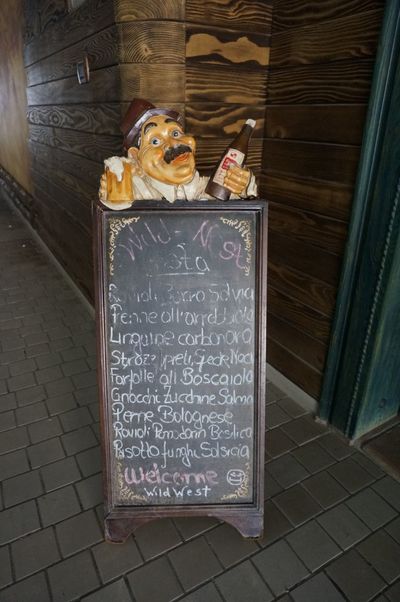 Wild-West
Pasta
Ravioli Burro Salvia
Penne all'arrabbiata
Linguine carbonara
Strozzapreti, Speck Noci
Farfalle alla Boscaiola
Gnocchi Zucchine Salmo
Penne Bolognese
Ravioli Pomodorin Basilico
Risotto funghi Salsicia
Welcome
Wild West